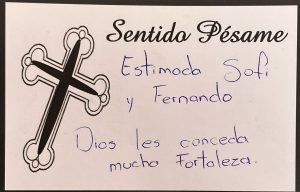 Sentido Pésame
Estimada Sofi
y Fernando
Dios les conceda
mucha Fortaleza.